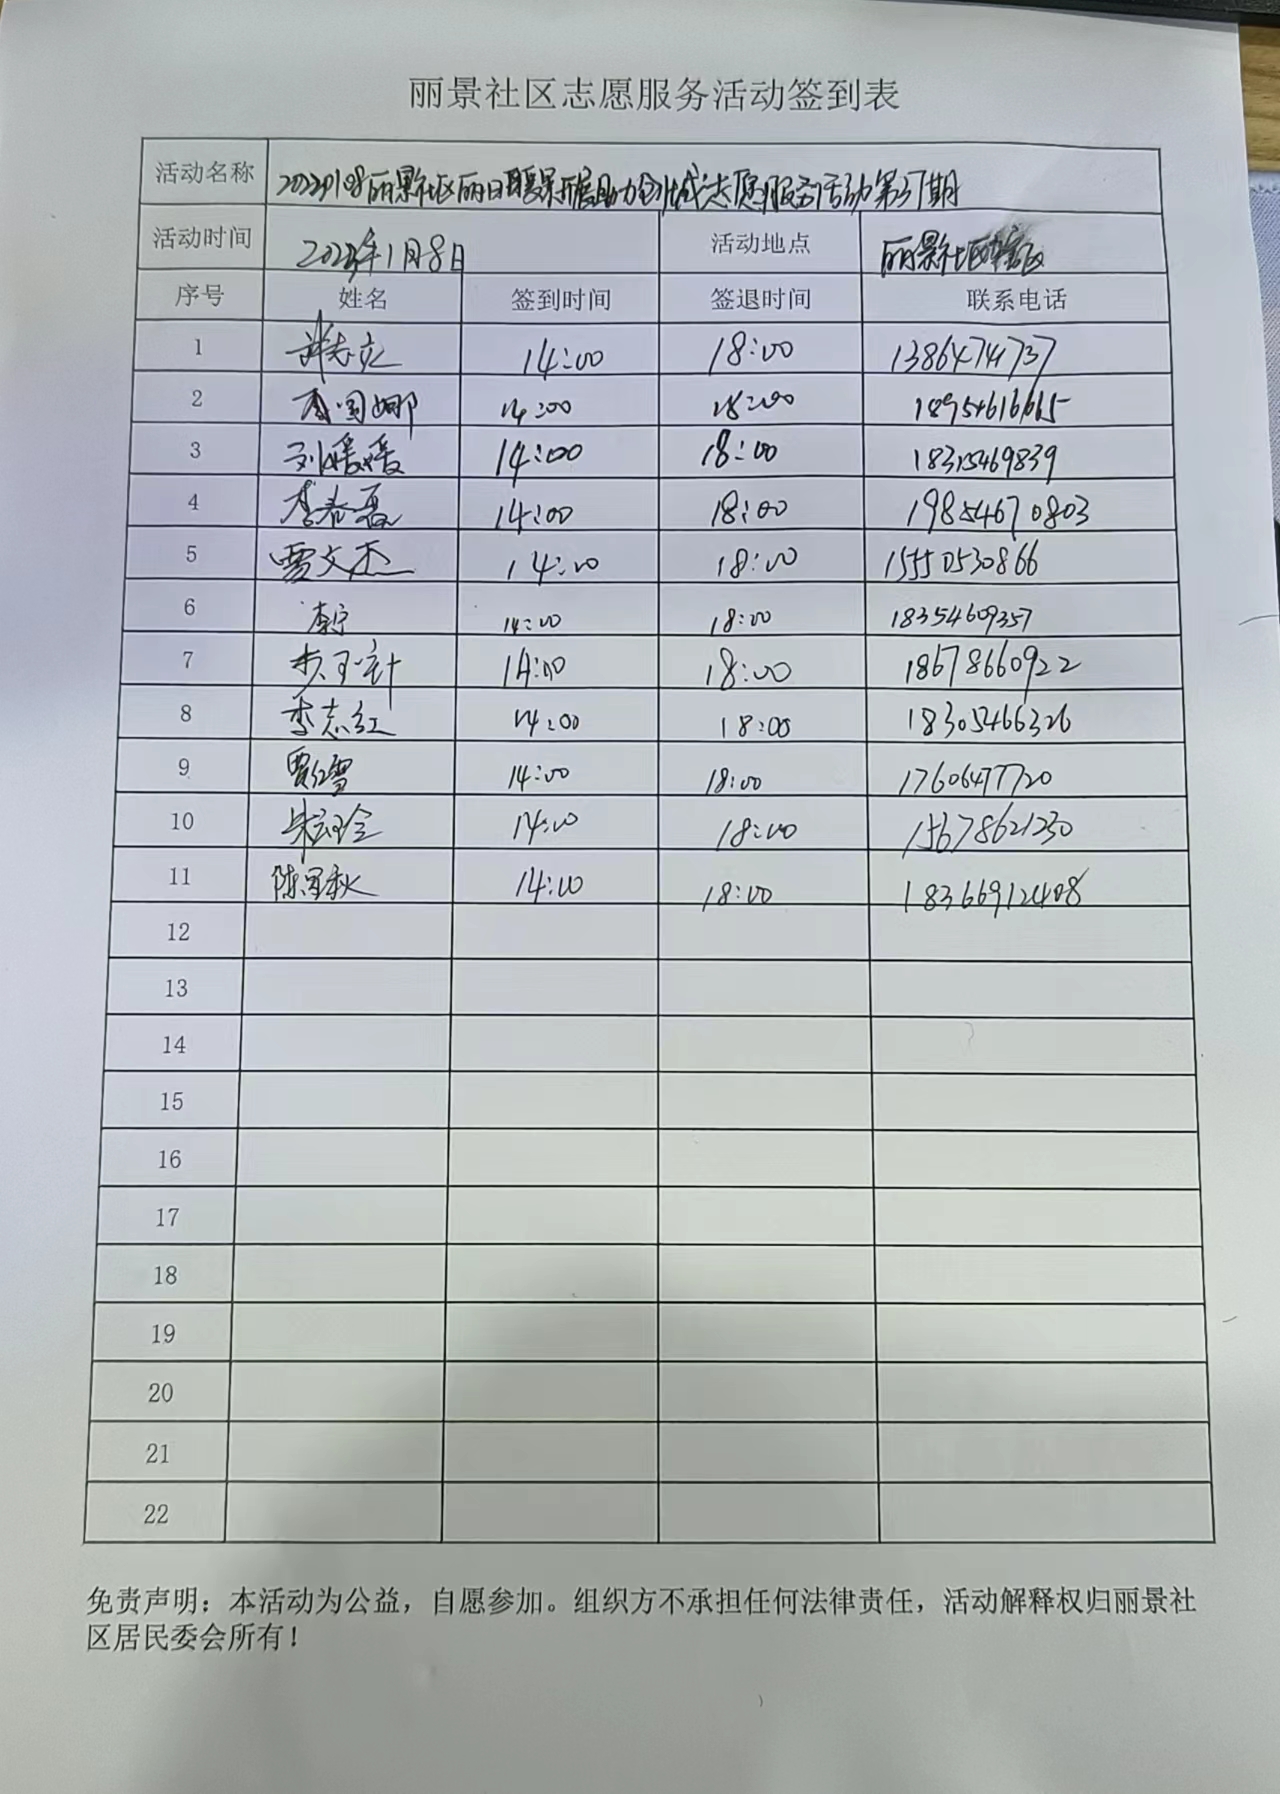 丽景社区志愿服务活动签到表
活动名称 20230108丽景社区丽日暖果开展助力创城志愿服务活动第37期
活动时间 2023年1月8日 活动地点 丽景社区辖区
序号 姓名 签到时间 签退时间 联系电话
1 许志立 14:00 18:00 13864741737
2 李国娜 14:00 18:00 18954616665
3 刘媛媛 14:00 18:00 18315469839
4 李春磊 14:00 18:00 19854670803
5 贾文杰 14:00 18:00 15550530866
6 李宁 14:00 18:00 18354609357
7 14:00 18:00 18678660922
8 李志红 14:00 18:00 18305466326
9 贾红雪 14:00 18:00 17606477720
10 14:00 18:00 15678621230
11 陈军秋 14:00 18:00 18366912408
12
13
14
15
16
17
18
19
20
21
22
免责声明：本活动为公益，自愿参加。组织方不承担任何法律责任，活动解释权归丽景社
区居民委会所有！